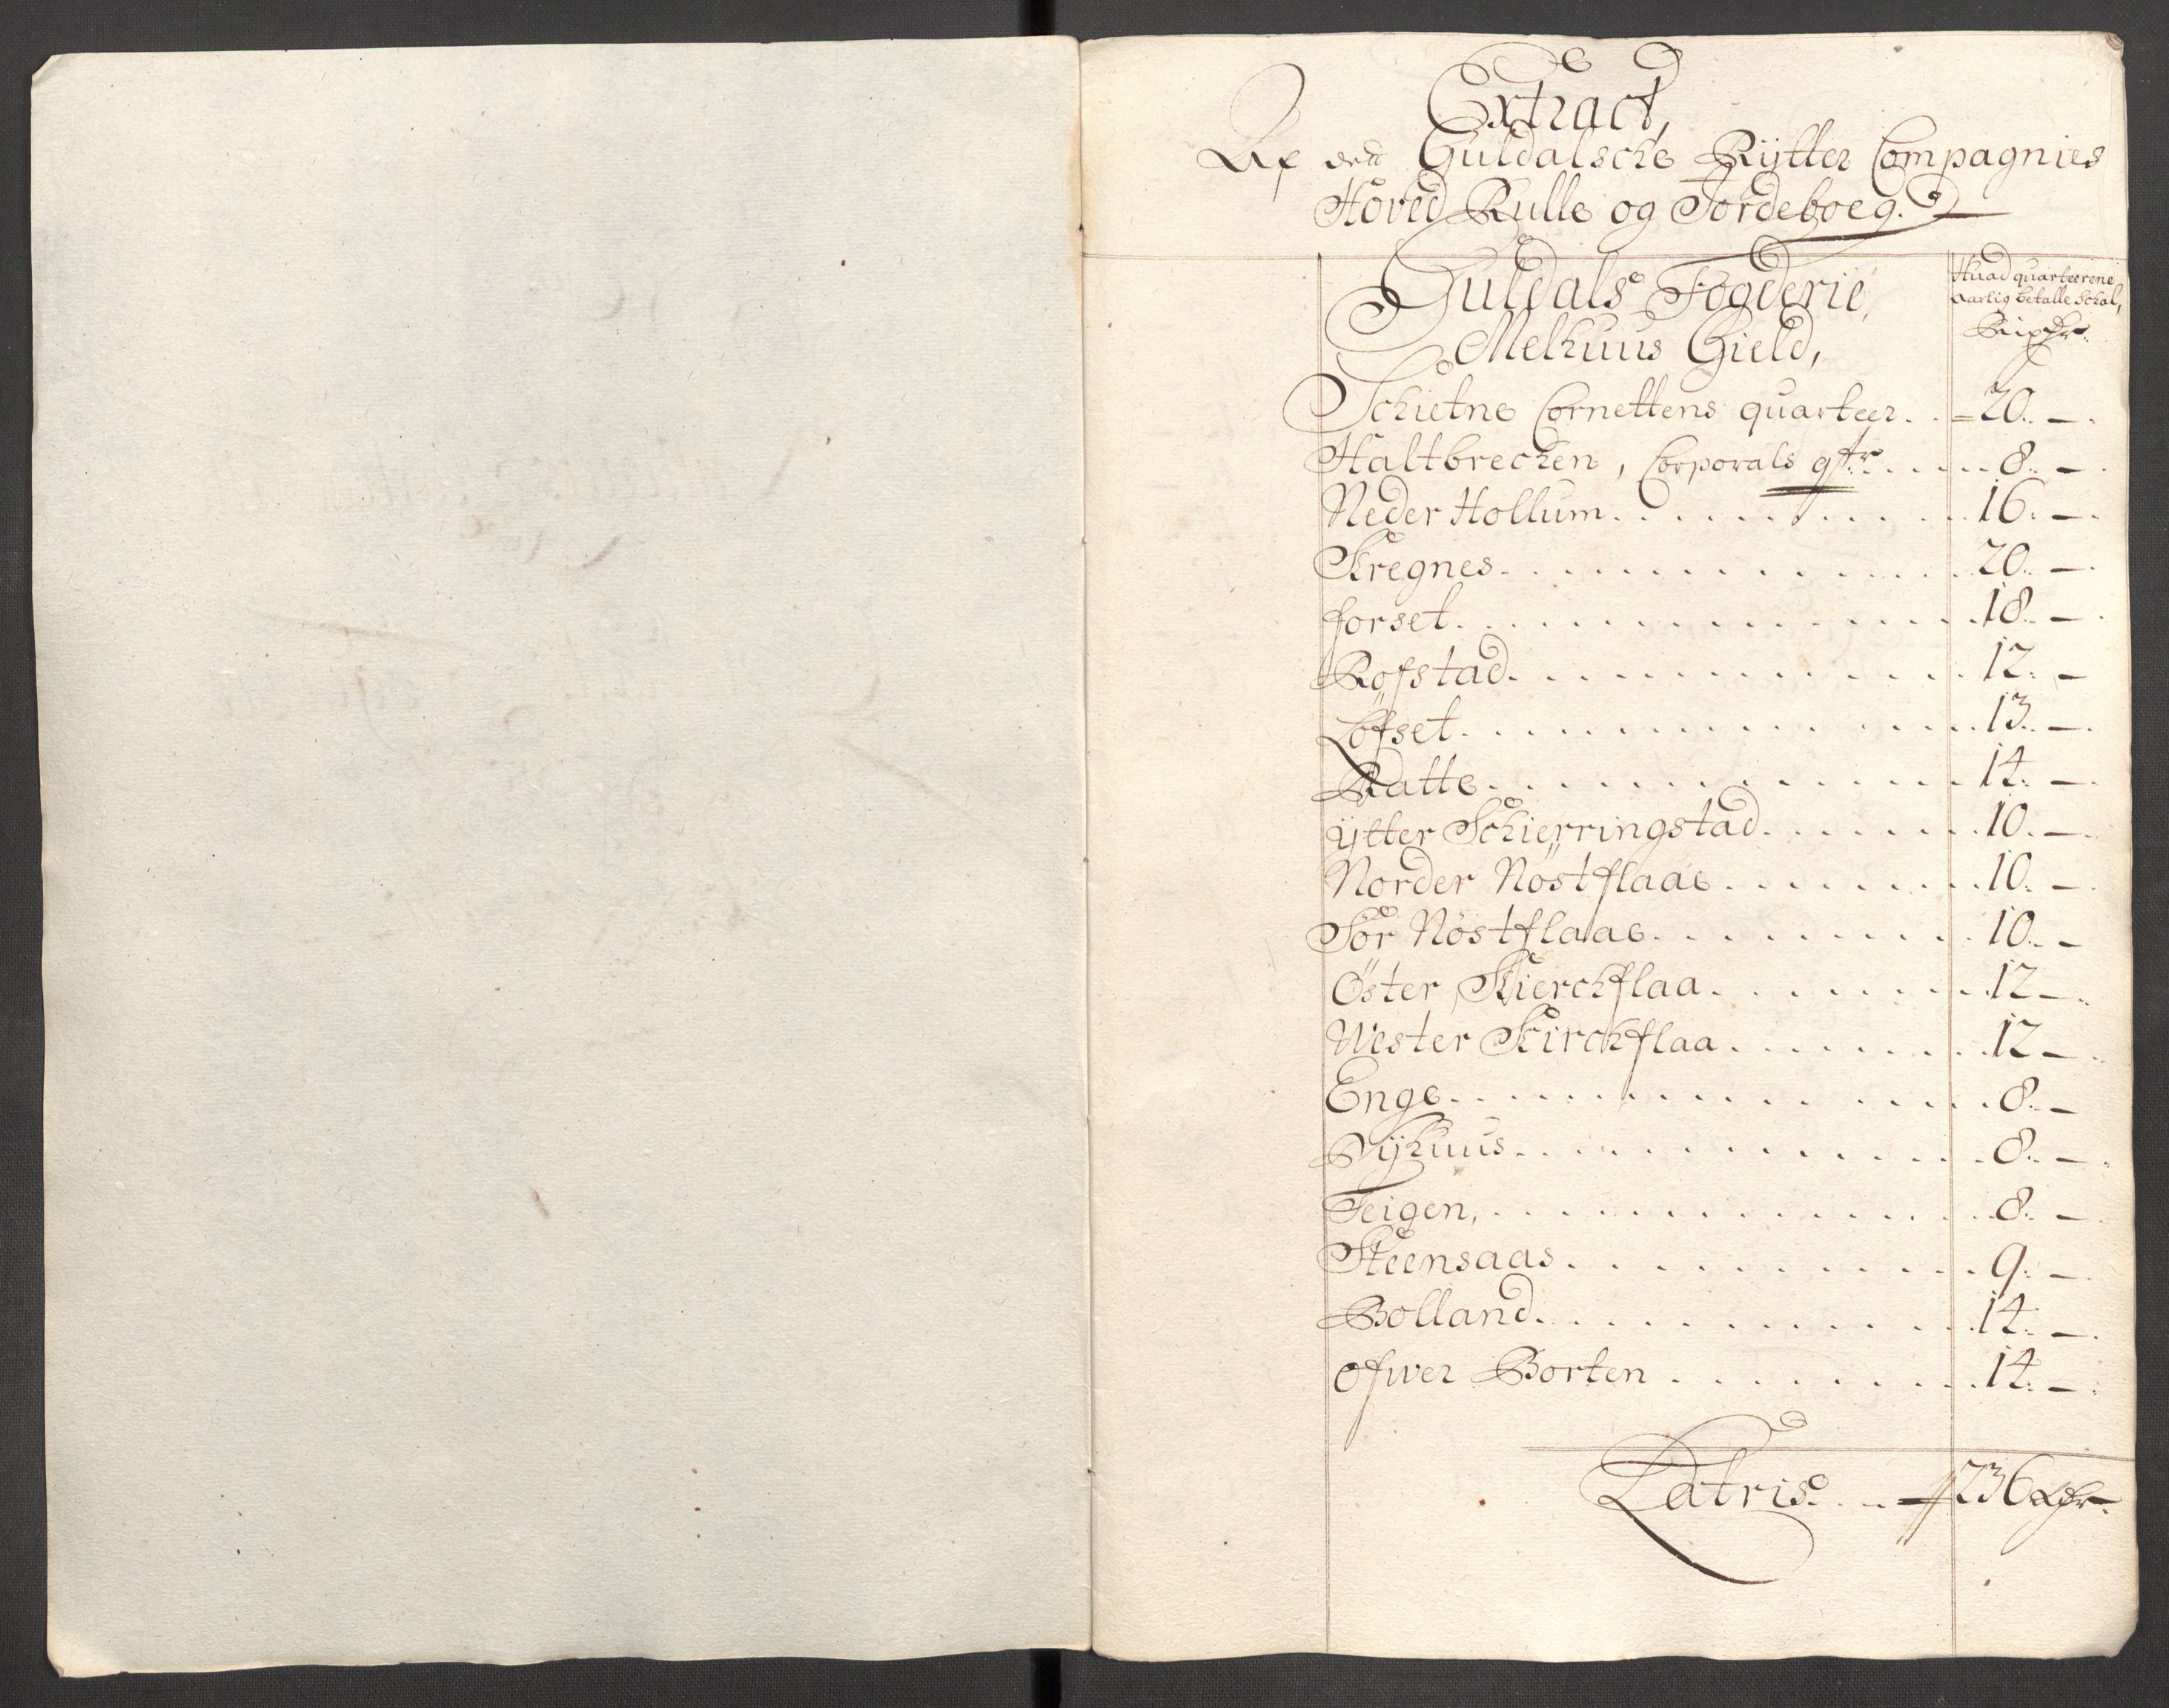 Extract,
Af den Guldalsche Rÿtter Compagnies
Hoved Rulle og Jordeboeg.
Guldals Fogderie,
Melhuus Gield,
Huad quarteerene
aarlig betalle Schal,
Schietne Cornettens quarteer. . = 20. —.
Haltbrechen, Corporals qtr. . . . . . 8. —.
Neder Hollum . . . . . . . . . . 16. —.
Kregnes . . . . . . . . . . . . 20. —.
forset . . . . . . . . . . . . . 18. —.
Røfstad . . . . . . . . . . . . 12. —
Löfset . . . . . . . . . . . . . 13. —.
Ratte . . . . . . . . . . . . . 14. —.
ÿtter Schierringstad . . . . . . . 10. —.
Norder Nöstflaae . . . . . . . . 10. —.
Sör Nöstflaae . . . . . . . . . 10. —
Öster Kierchflaa . . . . . . . . 12 —.
Wester Kirchflaa . . . . . . . . 12 —.
Enge . . . . . . . . . . . . . 8. —
Nÿhuus . . . . . . . . . . . . 8. —.
Teigen, . . . . . . . . . . . . 8. —
Steensaas . . . . . . . . . . . 9. —.
Bolland . . . . . . . . . . . . 14. —.
ofwer Borten . . . . . . . . . 14. —.
Latris . . — 236